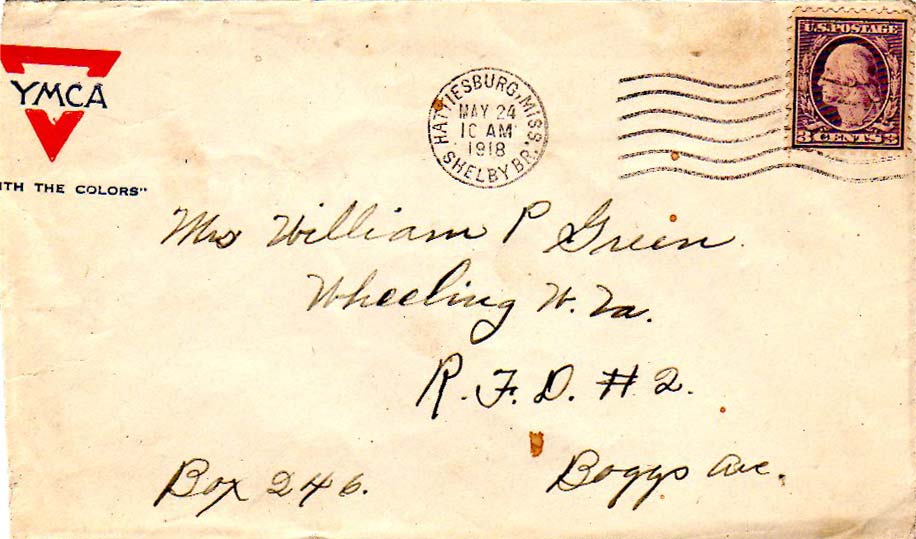 YMCA
ITH THE COLORS"
HATTIESBURG, MISS.
MAY 24
10 AM
1918
SHELBY BR.
U.S. POSTAGE
3 CENTS 3
Mrs William P Green
Wheeling W. Va.
R. F. D. # 2.
Box 246.
Boggs Ave.